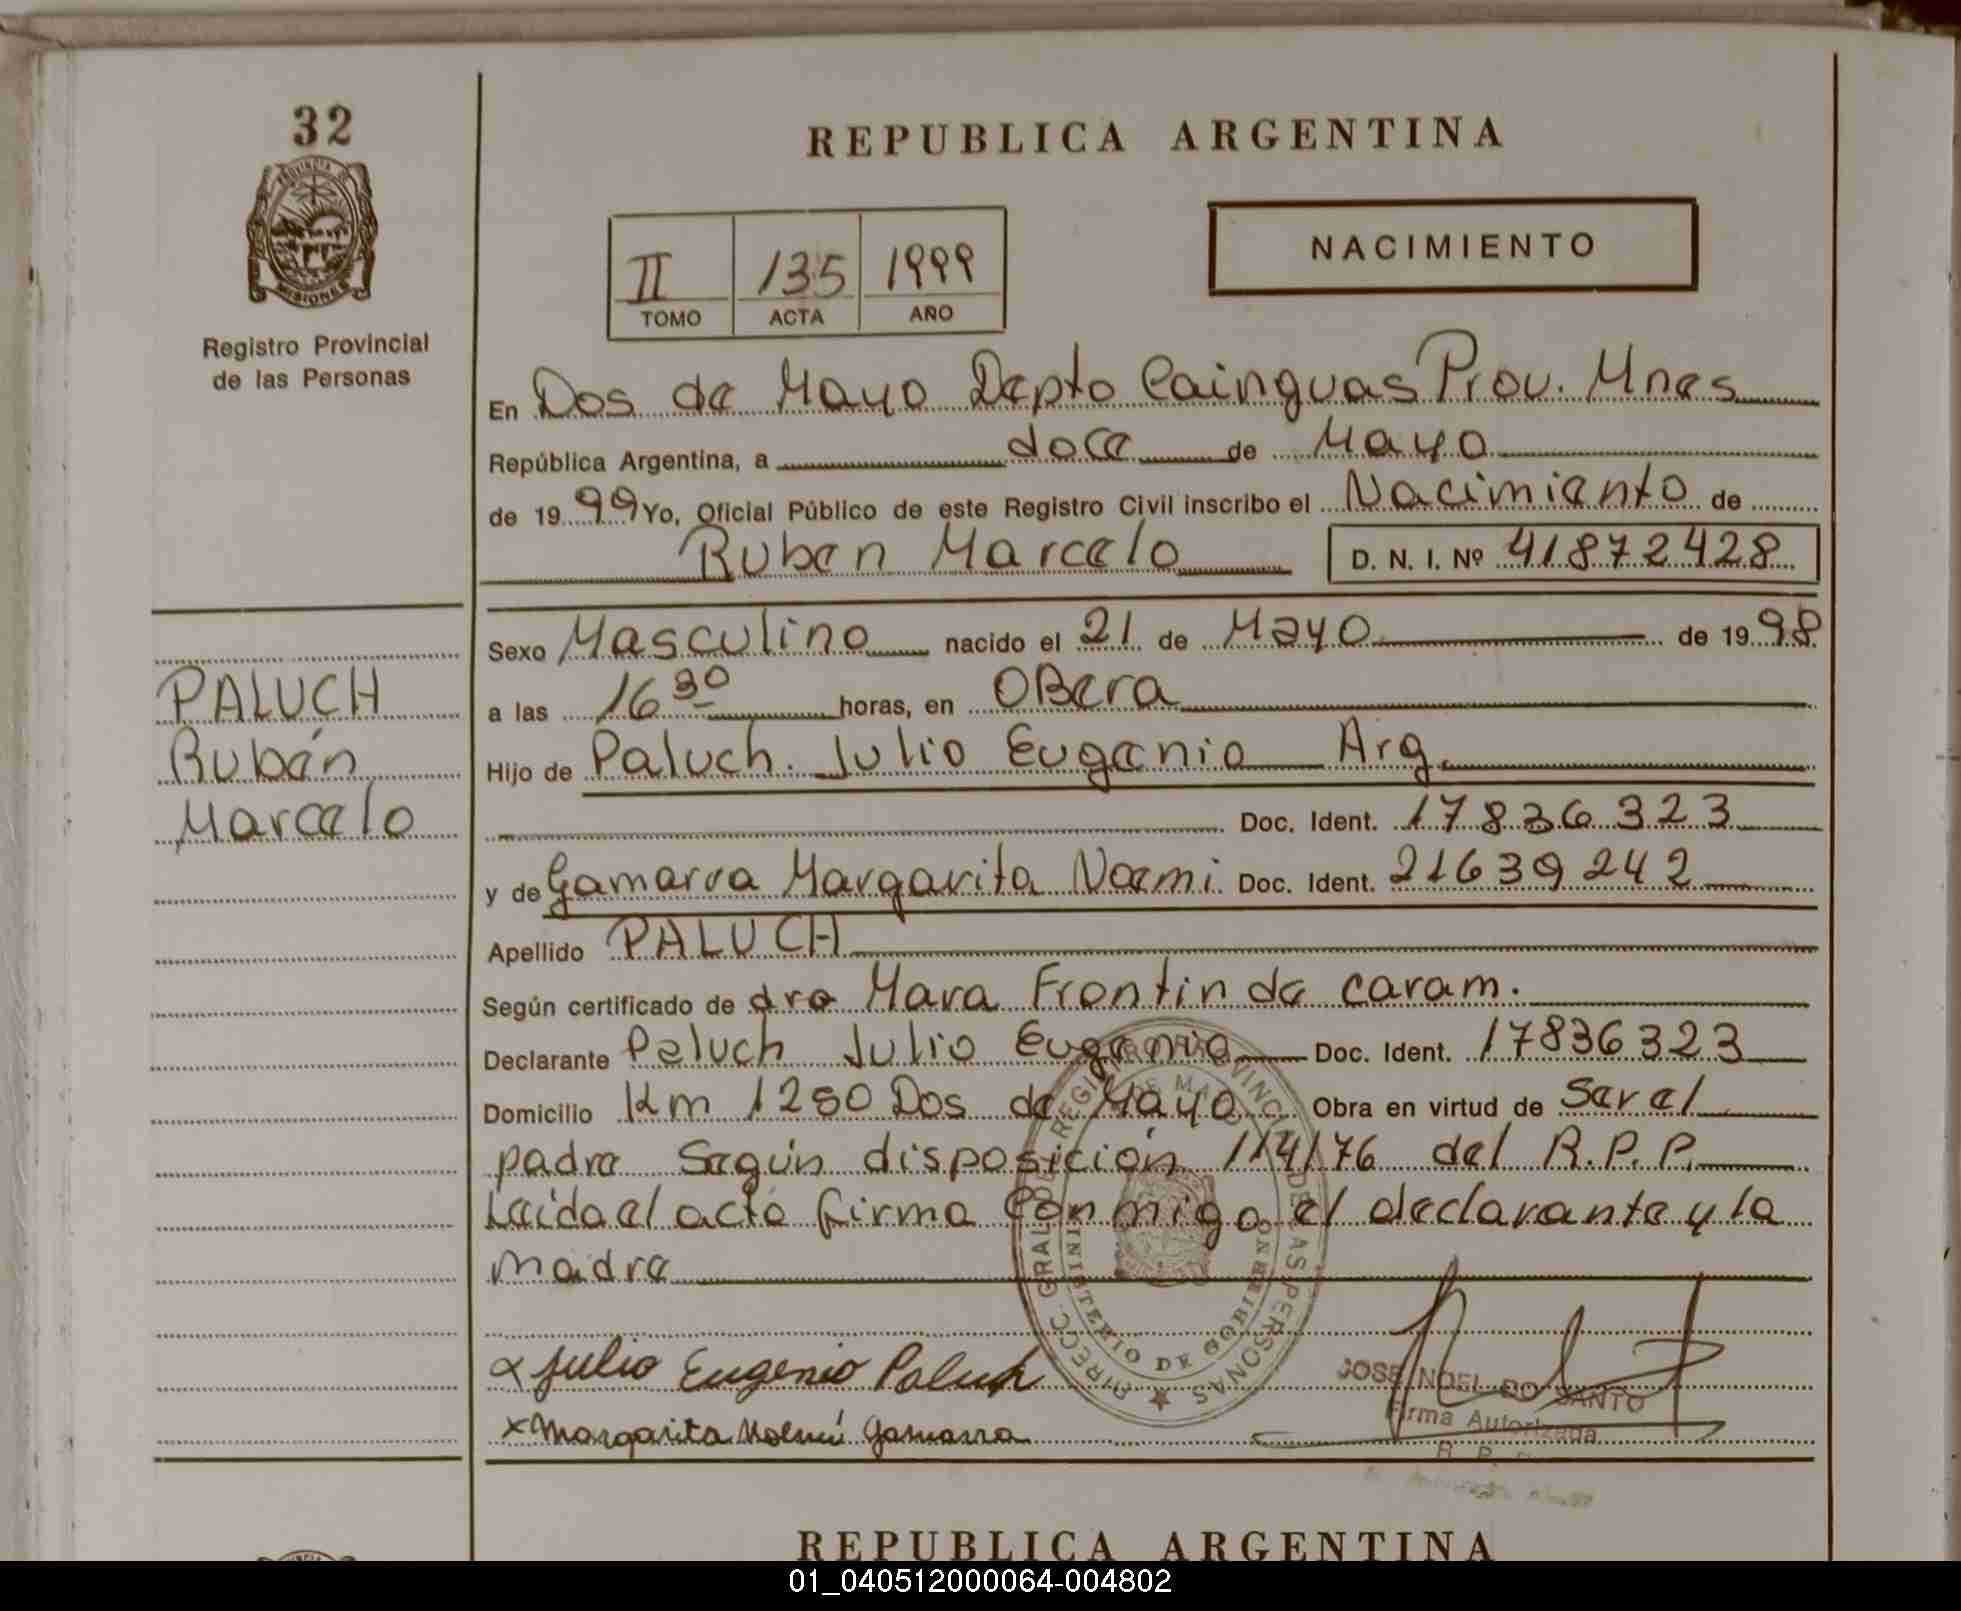 32
PROVINCIA DE
MISIONES
Registro Provincial
de las Personas
REPUBLICA ARGENTINA
II 135 1999
TOMO ACTA AÑO
NACIMIENTO
En Dos de Mayo Depto Cainguas Prov. Mnes
República Argentina, a doce de Mayo
de 1999 Yo, Oficial Público de este Registro Civil inscribo el Nacimiento de
Ruben Marcelo D. N. I. Nº 41872428
Sexo Masculino nacido el 21 de Mayo de 1998
a las 16 30 horas, en OBera
Hijo de Paluch. Julio Eugenio Arg.
Doc. Ident. 17836323
y de Gamarra Margarita Noemi Doc. Ident. 21639242
Apellido PALUCH
Según certificado de dra Mara Frontin de caram.
Declarante Paluch Julio Eugenio Doc. Ident. 17836323
Domicilio Km 1280 Dos de Mayo Obra en virtud de Ser el
padre Según disposición 114/76 del R.P.P.
Leída el acta firma Conmigo el declarante y la
madre
PALUCH
Rubén
Marcelo
x Julio Eugenio Paluch
x Margarita Noemí Gamarra
DIRECC. GRAL. DEL REGISTRO PROVINCIAL DE LAS PERSONAS
DOS DE MAYO
MINISTERIO DE GOBIERNO
JOSE NOEL DO SANTO
Firma Autorizada
R. P.
REPUBLICA ARGENTINA
01_040512000064-004802